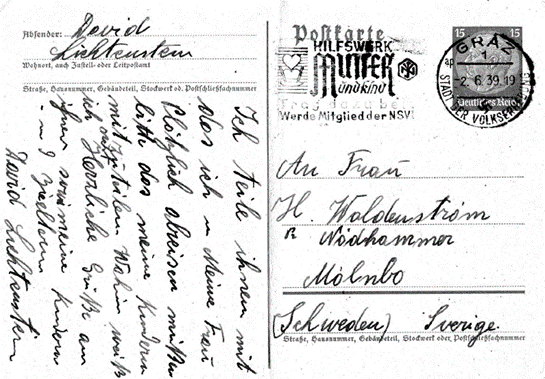 Absender: David
Lichtenstein
Wohnort, auch Zustell- oder Leitpostamt
Straße, Hausnummer, Gebäudeteil, Stockwerk od. Postschließfachnummer
Ich teile ihnen mit
das ich u Meine Frau
Plötzlich abreisen mußen
bitte das meine Kindern
mit
ich Herzliche Grüße an
ihnen sowie meine Kindern
David Lichtenstein
Postkarte
HILFSWERK
MUTTER
und Kind
Trag dazu bei
Werde Mitglied der NSV!
15 15
Deutsches Reich
GRAZ
1
-2.6.39.19
STADT DER VOLKSERHEBUNG
An Frau
H. Waldenström
R Nådhammer
Mölnbo
(Schweden) Sverige.
Straße, Hausnummer, Gebäudeteil, Stockwerk oder Postschließfachnummer